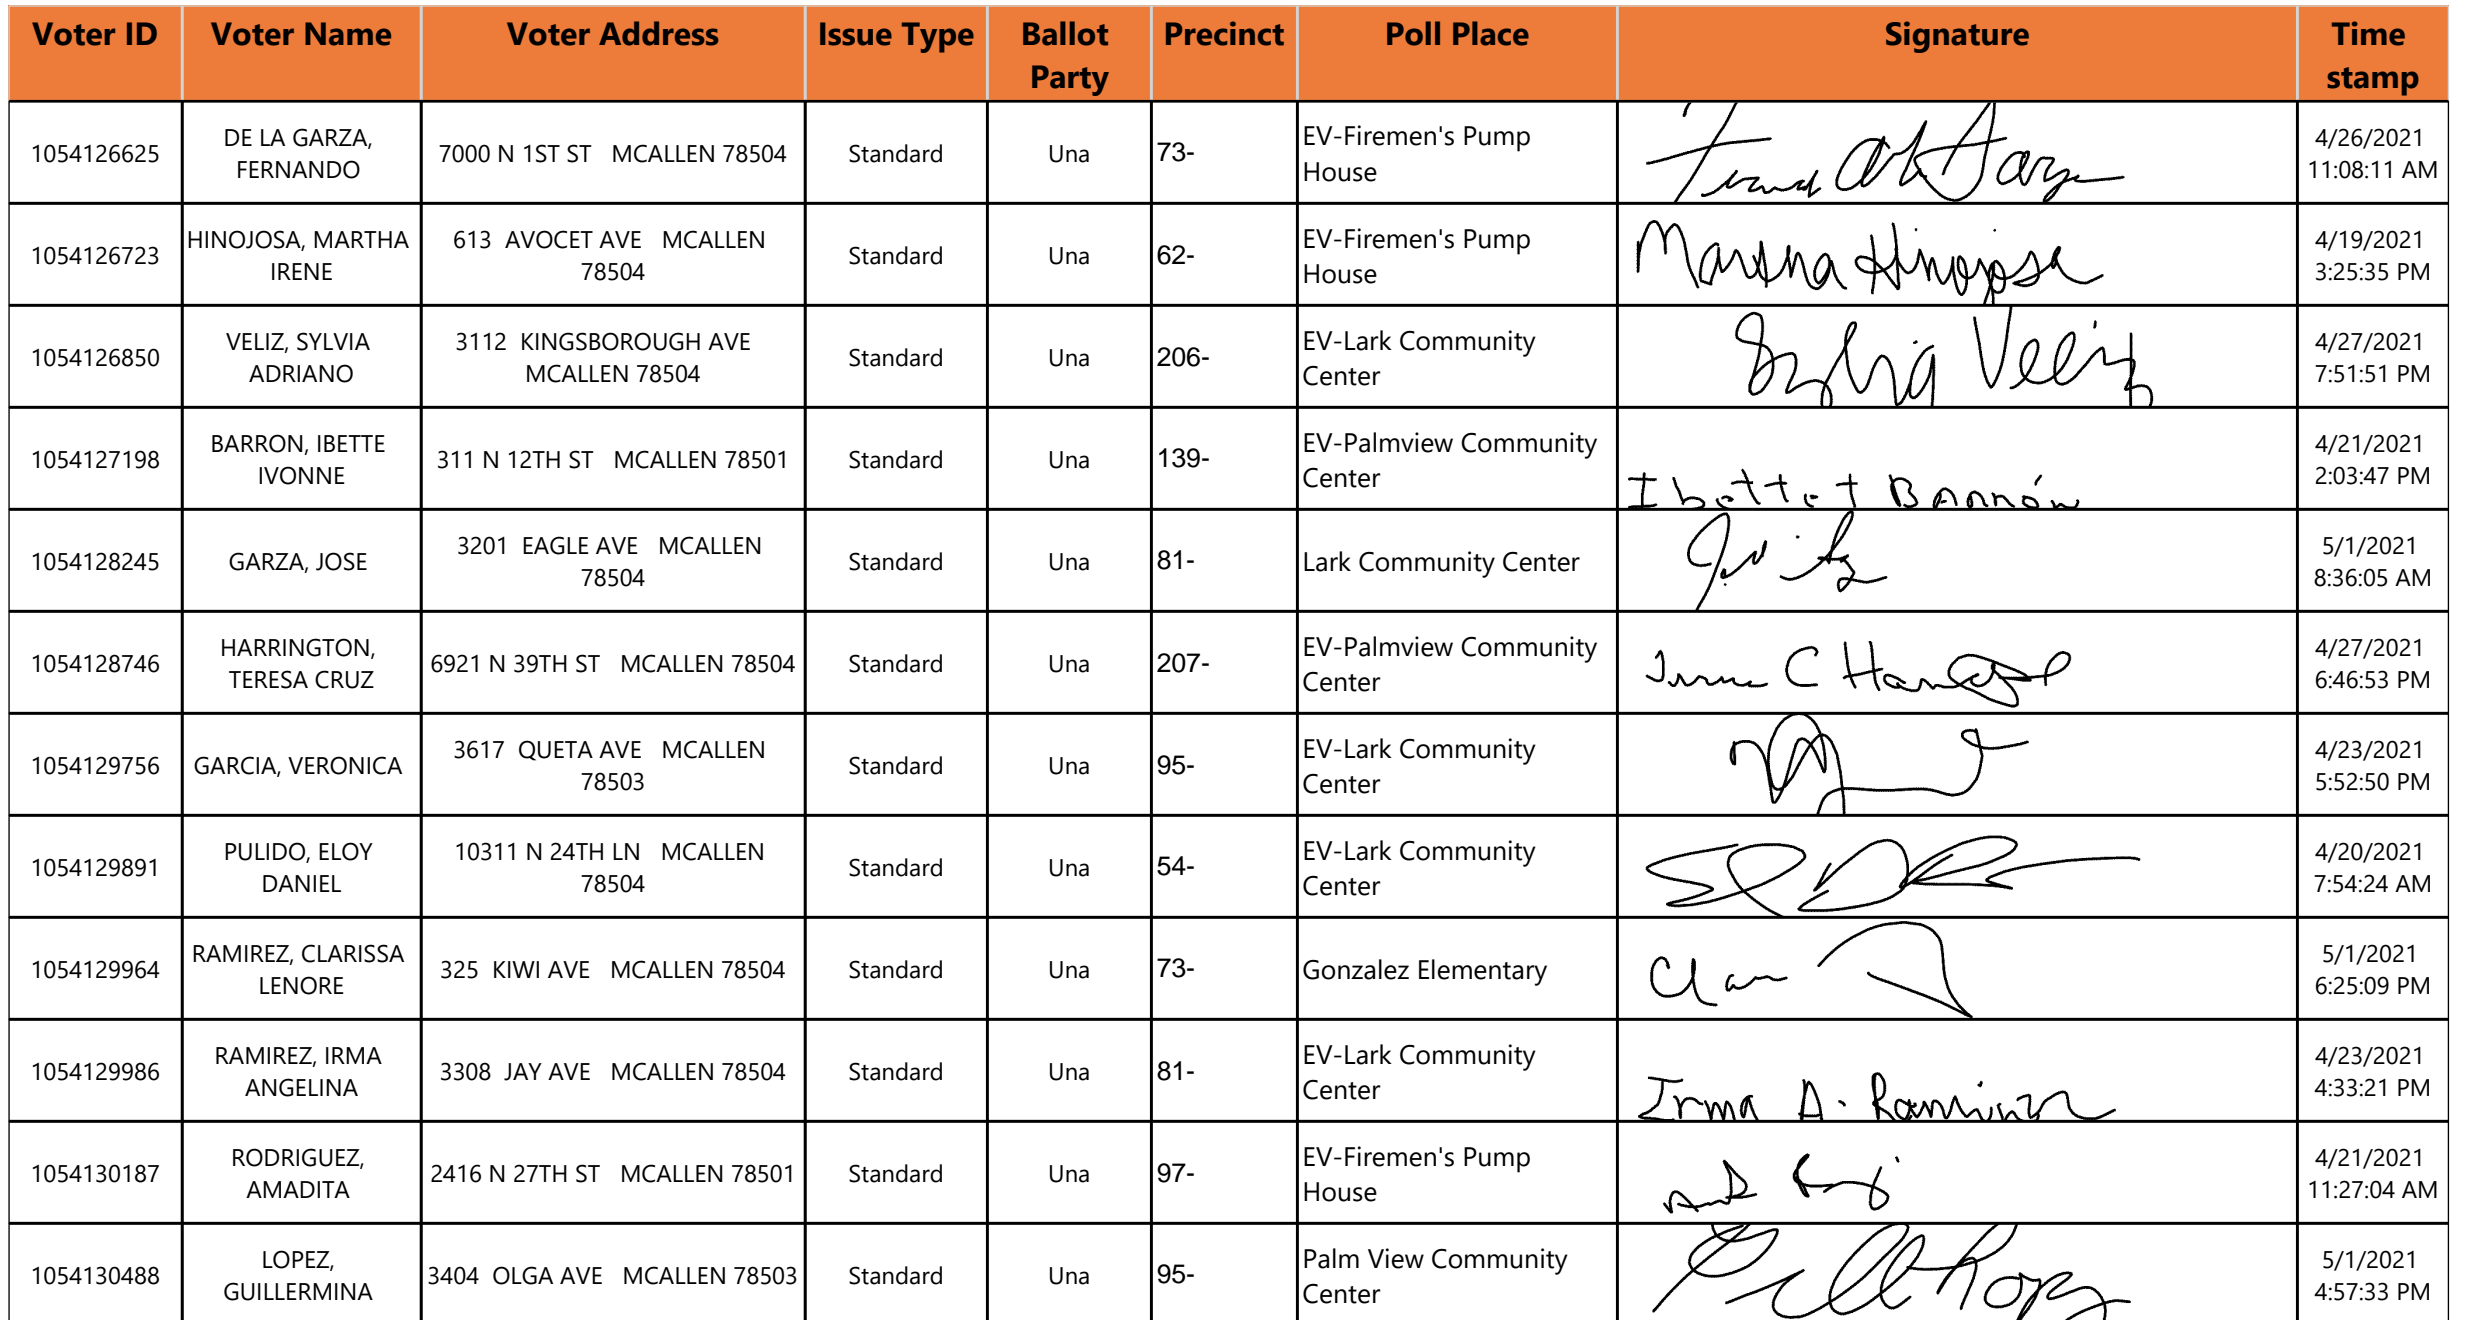 Voter ID Voter Name Voter Address Issue Type Ballot Party Precinct Poll Place Signature Time stamp
1054126625 DE LA GARZA, FERNANDO 7000 N 1ST ST MCALLEN 78504 Standard Una 73- EV-Firemen's Pump House 4/26/2021 11:08:11 AM
1054126723 HINOJOSA, MARTHA IRENE 613 AVOCET AVE MCALLEN 78504 Standard Una 62- EV-Firemen's Pump House Martha Hinojosa 4/19/2021 3:25:35 PM
1054126850 VELIZ, SYLVIA ADRIANO 3112 KINGSBOROUGH AVE MCALLEN 78504 Standard Una 206- EV-Lark Community Center Sylvia Veliz 4/27/2021 7:51:51 PM
1054127198 BARRON, IBETTE IVONNE 311 N 12TH ST MCALLEN 78501 Standard Una 139- EV-Palmview Community Center Ibette I Barrón 4/21/2021 2:03:47 PM
1054128245 GARZA, JOSE 3201 EAGLE AVE MCALLEN 78504 Standard Una 81- Lark Community Center 5/1/2021 8:36:05 AM
1054128746 HARRINGTON, TERESA CRUZ 6921 N 39TH ST MCALLEN 78504 Standard Una 207- EV-Palmview Community Center 4/27/2021 6:46:53 PM
1054129756 GARCIA, VERONICA 3617 QUETA AVE MCALLEN 78503 Standard Una 95- EV-Lark Community Center 4/23/2021 5:52:50 PM
1054129891 PULIDO, ELOY DANIEL 10311 N 24TH LN MCALLEN 78504 Standard Una 54- EV-Lark Community Center 4/20/2021 7:54:24 AM
1054129964 RAMIREZ, CLARISSA LENORE 325 KIWI AVE MCALLEN 78504 Standard Una 73- Gonzalez Elementary 5/1/2021 6:25:09 PM
1054129986 RAMIREZ, IRMA ANGELINA 3308 JAY AVE MCALLEN 78504 Standard Una 81- EV-Lark Community Center Irma A. Ramirez 4/23/2021 4:33:21 PM
1054130187 RODRIGUEZ, AMADITA 2416 N 27TH ST MCALLEN 78501 Standard Una 97- EV-Firemen's Pump House 4/21/2021 11:27:04 AM
1054130488 LOPEZ, GUILLERMINA 3404 OLGA AVE MCALLEN 78503 Standard Una 95- Palm View Community Center 5/1/2021 4:57:33 PM